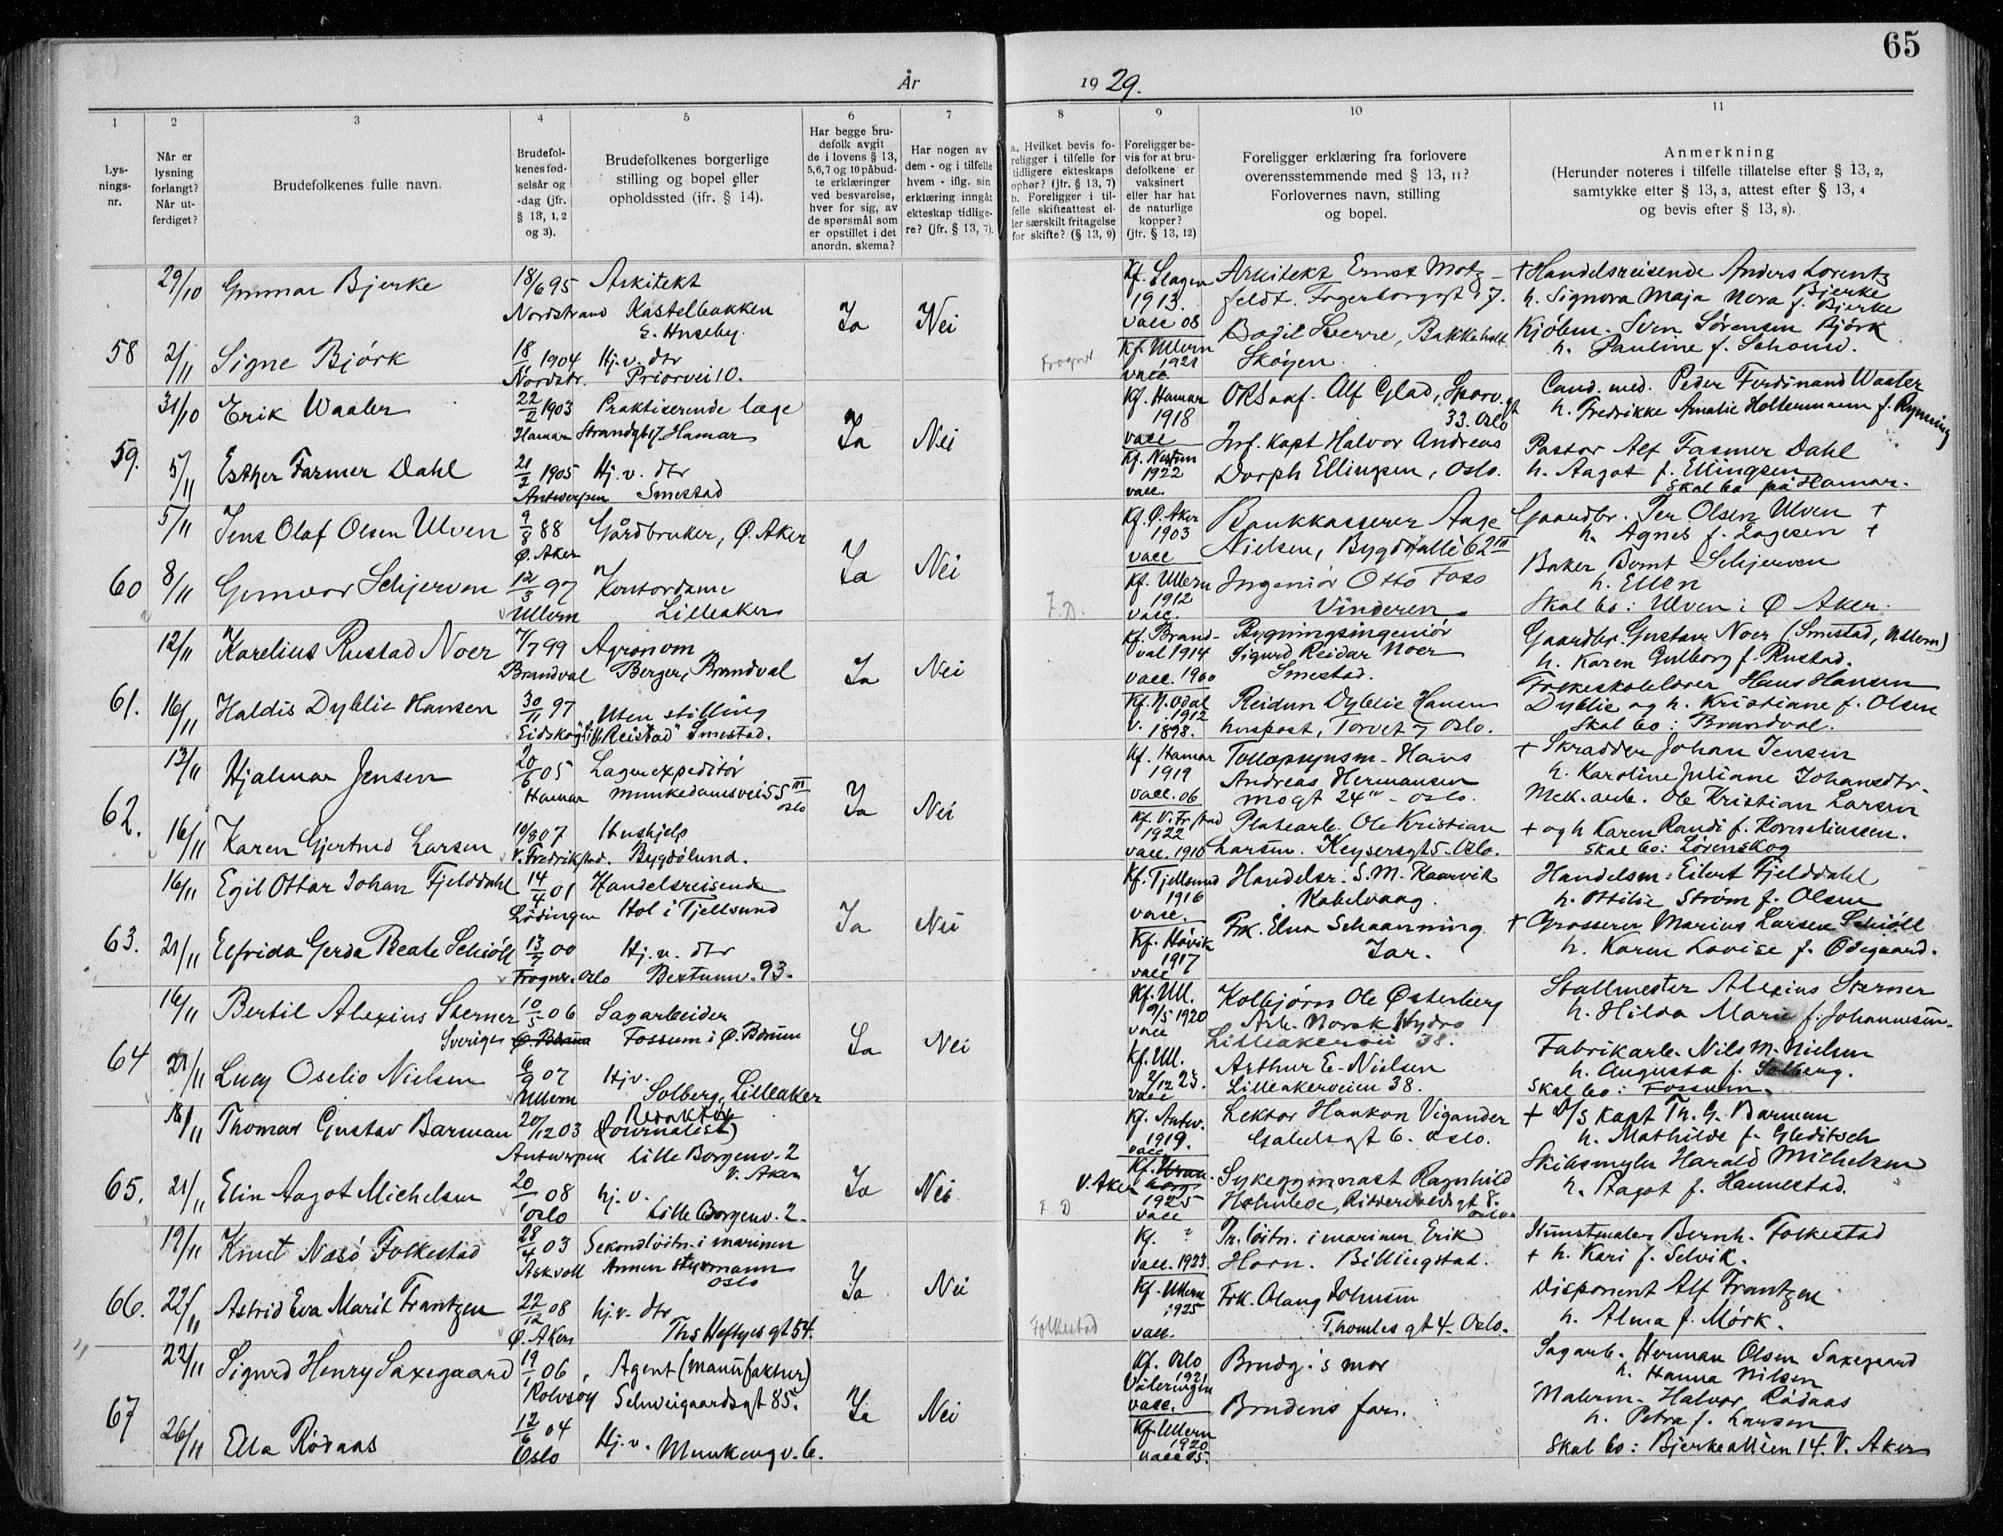 65
År 1929.
1 2 3 4 5 6 7 8 9 10 11
Lys-
nings-
nr.
Når er
lysning
forlangt?
Når ut-
ferdiget?
Brudefolkenes fulle navn.
Brudefol-
kenes fød-
selsår og
-dag (jfr.
§ 13, 1, 2
og 3).
Brudefolkenes borgerlige
stilling og bopel eller
opholdssted (jfr. § 14).
Har begge bru-
defolk avgit
de i lovens § 13,
5,6,7 og 10 påbud-
te erklæringer
ved besvarelse,
hver for sig, av
de spørsmål som
er opstillet i det
anordn. skema?
Har nogen av
dem - og i tilfelle
hvem - iflg. sin
erklæring inngått
ekteskap tidlige-
re? (jfr. § 13, 7).
a. Hvilket bevis fo-
religger i tilfelle for
tidligere ekteskaps
ophør? (jfr. § 13, 7)
b. Foreligger i til-
felle skifteattest el-
ler særskilt fritagelse
for skifte? (§ 13, 9)
Foreligger be-
vis for at bru-
defolkene er
vaksinert
eller har hat
de naturlige
kopper?
(jfr. § 13, 12)
Foreligger erklæring fra forlovere
overensstemmende med § 13, 11?
Forlovernes navn, stilling
og bopel.
Anmerkning
(Herunder noteres i tilfelle tillatelse efter § 13, 2,
samtykke efter § 13, 3, attest efter § 13, 4
og bevis efter § 13, 8).
58
29/10 Gunnar Bjerke
18/6 95 Arkitekt
Nordstrand Kastelbakken
Ja Nei
Kf. Slagen
1913.
vacc 08
Arkitekt Ernst Motz-
feldt. Fagerborggt 17.
+ Handelsreisende Anders Lorentz
Bjerke
h. Signora Maja Nora f. Bjerke
2/11 Signe Bjørk
18/ 1904 Hj. v. dtr
Nordstr. Priorvei 10.
Frogner
Kf. Ullern
1921
vacc
Bodil Sverre, Bakkeholt
Skogen.
Kjøbm. Sven Sørensen Bjørk
h. Pauline f.
59.
31/10 Erik Waaler
22/2 1903 Praktiserende læge
Hamar Strandgt 17 Hamar
Ja Nei
Kf. Hamar
1918
vacc
Alf Glad, Sporv.gt
33. Oslo
Cand. med. Peder Ferdinand Waaler
h. Fredrikke Amalie Holtermann f. Rynning
5/11 Esther Fasmer Dahl
21/2 1905 Hj. v. dtr
Antwerpen Smestad
Kf. Nesttun
1922
vacc.
Inf. kapt Halvor Andreas
Dorph Ellingsen, Oslo.
Pastor Alf Fasmer Dahl
h. Aagot f. Ellingsen
Skal bo på Hamar.
60
5/11 Jens Olaf Olsen Ulven
9/8 88 Gårdbruker, Ø. Aker
Ø. Aker
Ja Nei
Kf. Ø. Aker
1903
vacc
Bankkasserer Aage
Nielsen, Bygdø allé 62 III
Gaardbr. Per Olsen Ulven +
h. Agnes f. Lagesen +
8/11 Gunvor Schjerven
12/3 97 Kontordame
Ullern Lilleaker
F. D.
Kf. Ullern
1912
vacc.
Ingeniør Otto Foss
Vinderen
Baker Bernt Schjerven
h. Ellen
Skal bo: Ulven i Ø Aker.
61.
12/11 Karelius Rustad Noer
7/7 99 Agronom
Brandval Berger, Brandval
Ja Nei
Kf. Brand-
val 1914
vacc. 1900
Bygningsingeniør
Sigurd Reidar Noer
Smestad.
Gaardbr. Gustav Noer (Smestad, Ullern)
h. Karen Gulborg f. Rustad.
16/11 Haldis Dyblie Hansen
30/11 97 Uten stilling
Eidskog "Reistad" Smestad.
Kf. N. Odal
1912
v. 1898.
Reidun Dyblie Hansen
huspost, Torvet 7 Oslo.
Folkeskolelærer Hans Hansen
Dyblie og h. Kristiane f. Olsen
Skal bo: Brandval.
62.
13/11 Hjalmar Jensen
20/6 05 Lagerexpeditør
Hamar Munkedamsvei 55 III
Oslo
Ja Nei
Kf. Hamar
1919
vacc. 06
Tolloppsynsm. Hans
Andreas Hermansen
24 - Oslo.
+ Skradder Johan Jensen
h. Karoline Juliane Johansdtr.
16/11 Karen Gjertrud Larsen
10/8 07 Hushjelp
V. Fredrikstad. Bygdølund.
Kf. V. Fr.stad
1922
vacc. 1910
Platearb. Ole Kristian
Larsen. Keysersgt 5. Oslo.
Mek. arb. Ole Kristian Larsen
+ og h Karen Randi f. Korneliussen.
Skal bo: Lørenskog
63.
16/11 Egil Ottar Johan Fjelddahl
14/4 01 Handelsreisende
Lødingen Hol i Tjellsund
Ja Nei
Kf. Tjellsund
1916
vacc.
Handelsr. S. M. Kaarvik
Kabelvaag.
Handelsm: Eilert Fjelddahl
h. Ottilie Strøm f. Olsen
21/11 Elfrida Gerda Beate Schiøll
13/7 00 Hj. v. dtr
Frogner. Oslo Bestumv. 93.
Kf. Høvik
1917
vacc
Frk. Elna Schaanning
Jar.
+ Grosserer Marius Larsen Schiøll
h. Karen Lovise f. Ødegaard.
64
16/11 Bertil Alexius Sterner
10/5 06 Sagarbeider
Sverige Ø. Bærum Fossum i Ø. Bærum
Ja Nei
Kf. Ull.
9/5 1920
vacc
Kolbjørn Ole Østerberg
Arb. Norsk Hydro
Lilleakerveien 38.
Stallmester Alexius Sterner
h. Hilda Marie f. Johannesen.
21/11 Lucy Oselio Nielsen
6/9 07 Hjv.
Ullern Solberg, Lilleaker
Kf. Ull.
2/12 23.
vacc
Arthur E. Nielsen
Lilleakerveien 38.
Fabrikarb. Nils M. Nielsen
h. Augusta f. Solberg.
Skal bo: Fossum.
65.
18/11 Thomas Gustav Barman
20/12 03 Redaktør
(Journalist)
Antwerpen Lille Borgenv. 2
V. Aker
Ja Nei
Kf. Antw.
1919.
vacc
Lektor Haakon Vigander
Gabelsgt 6. Oslo.
+ D/S kapt Th. G. Barman
h. Mathilde f. Gleditsch
21/11 Elin Aagot Michelsen
20/1 08 hj. v.
Oslo Lille Borgenv. 2.
F. D
V. Aker
1925
vacc
Sykegymnast Ragnhild
Oslo
Skibsmegler Harald Michelsen
h. Aagot f. Hannestad.
66.
19/11 Knut Næsø Folkestad
28/4 03 Sekondløitn. i marinen
Askvoll
Oslo
Ja Nei
Kf. "
vacc. 1923.
Pr. løitn. i marinen Erik
Horn. Billingstad.
Kunstmaler Bernh. Folkestad
+ h. Kari f. Selvik.
22/11 Astrid Eva Marit Frantzen
22/12 08 hj. v. dtr
Ø. Aker Ths Heftyes gt 54.
Folkestad
Kf. Ullern
1925
vacc.
Frk. Olaug Johnsen
Thomles gt 4. Oslo.
Disponent Alf Frantzen
h. Alma f. Mørk.
67
22/11 Sigurd Henry Saxegaard
19/1 06, Agent (manufaktur)
Rolvsøy Schweigaardsgt 85.
Ja Nei
Kf. Oslo
1921
Vålerengen
vacc.
Brudg.'s mor
Sagarb. Herman Olsen Saxegaard
h. Hanna Nilsen
26/11 Ella Rødaas
12/6 04 Hj. v. Munkeng v. 6.
Oslo
Kf. Ullern
1920
vacc 05.
Brudens far.
Malerm. Halvor Rødaas
h. Petra f. Larsen
Skal bo: Bjerkealléen 14. V. Aker